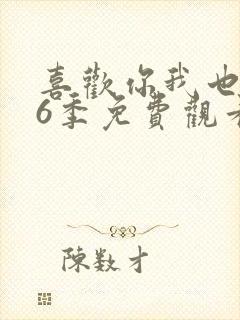 喜歡你我也
6季免費觀看
陳数才